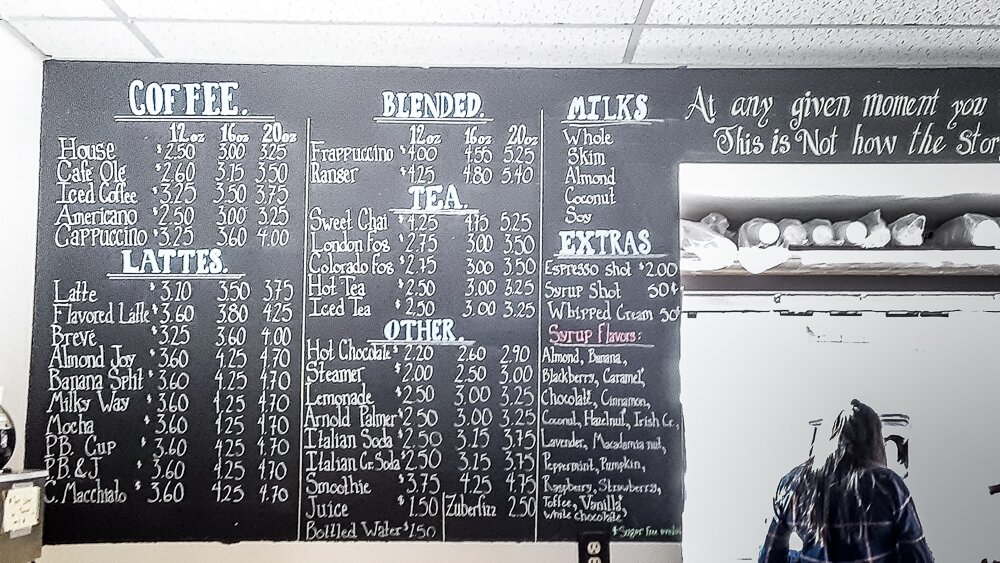 COFFEE.
12oz 16oz 20oz
House $2.50 3.00 3.25
Cafe Ole $2.60 3.15 3.50
Iced Coffee $3.25 3.50 3.75
Americano $2.50 3.00 3.25
Cappuccino $3.25 3.60 4.00
LATTES.
Latte $3.10 3.50 3.75
Flavored Latte $3.60 3.80 4.25
Breve $3.25 3.60 4.00
Almond Joy $3.60 4.25 4.70
Banana Split $3.60 4.25 4.70
Milky Way $3.60 4.25 4.70
Mocha $3.60 4.25 4.70
P.B. Cup $3.60 4.25 4.70
P.B & J $3.60 4.25 4.70
C. Macchiato $3.60 4.25 4.70
BLENDED.
12oz 16oz 20oz
Frappuccino $4.00 4.55 5.25
Ranger $4.25 4.80 5.40
TEA.
Sweet Chai $4.25 4.75 5.25
London Fog $2.75 3.00 3.50
Colorado Fog $2.75 3.00 3.50
Hot Tea $2.50 3.00 3.25
Iced Tea $2.50 3.00 3.25
OTHER.
Hot Chocolate $2.20 2.60 2.90
Steamer $2.00 2.50 3.00
Lemonade $2.50 3.00 3.25
Arnold Palmer $2.50 3.00 3.25
Italian Soda $2.50 3.15 3.75
Italian Cr. Soda $2.50 3.15 3.75
Smoothie $3.75 4.25 4.75
Juice $1.50 Zuberfizz 2.50
Bottled Water $1.50
MILKS
Whole
Skim
Almond
Coconut
Soy
EXTRAS
Espresso shot $2.00
Syrup Shot 50¢
Whipped Cream 50¢
Syrup Flavors:
Almond, Banana,
Blackberry, Caramel,
Chocolate, Cinnamon,
Coconut, Hazelnut, Irish Cr.,
Lavender, Macadamia nut,
Peppermint, Pumpkin,
Raspberry, Strawberry,
Toffee, Vanilla,
White chocolate
*Sugar free
At any given moment you
This is Not how the Stor